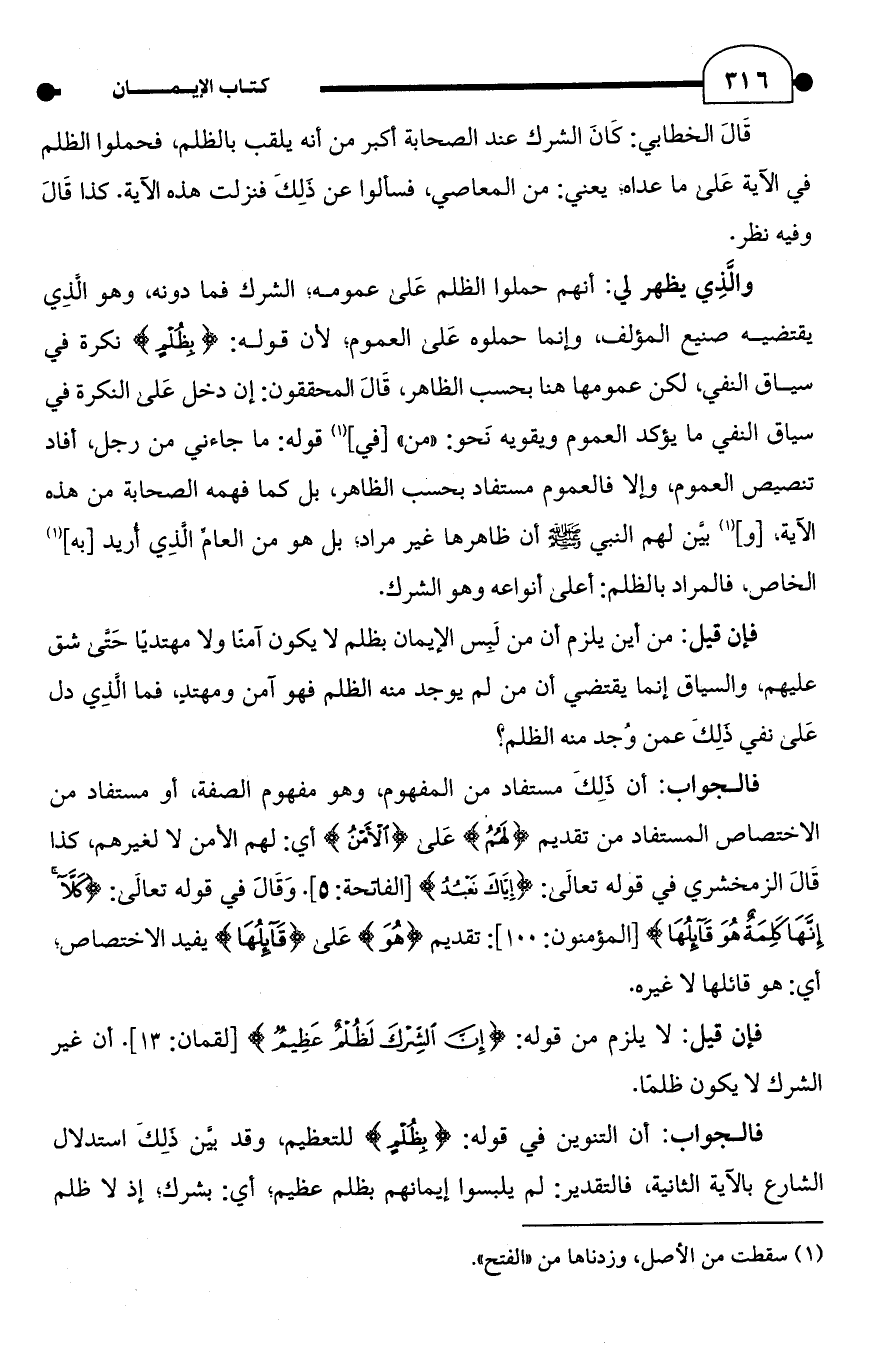 ٣١٦
كتاب الإيـمـــــان
قَالَ الخطابي: كَانَ الشرك عند الصحابة أكبر من أنه يلقب بالظلم، فحملوا الظلم
في الآية عَلىٰ ما عداه؛ يعني: من المعاصي، فسألوا عن ذَلِكَ فنزلت هذه الآية. كذا قَالَ
وفيه نظر.
والَّذِي يظهر لي: أنهم حملوا الظلم عَلىٰ عمومـه؛ الشرك فما دونه، وهو الَّذِي
يقتضيـه صنيع المؤلف، وإنما حملوه عَلىٰ العموم؛ لأن قولـه: ﴿بِظُلْمٍ﴾ نكرة في
سيـاق النفي، لكن عمومها هنا بحسب الظاهر، قَالَ المحققون: إن دخل عَلىٰ النكرة في
سياق النفي ما يؤكد العموم ويقويه نَحو: «من» [في](١) قوله: ما جاءني من رجل، أفاد
تنصيص العموم، وإلا فالعموم مستفاد بحسب الظاهر، بل كما فهمه الصحابة من هذه
الآية، [و](١) بيَّن لهم النبي ﷺ أن ظاهرها غير مراد؛ بل هو من العامِّ الَّذِي أُريد [به](١)
الخاص، فالمراد بالظلم: أعلىٰ أنواعه وهو الشرك.
فإن قيل: من أين يلزم أن من لَبِس الإيمان بظلم لا يكون آمنًا ولا مهتديًا حَتَّىٰ شق
عليهم، والسياق إنما يقتضي أن من لم يوجد منه الظلم فهو آمن ومهتدٍ، فما الَّذِي دل
عَلىٰ نفي ذَلِكَ عمن وُجد منه الظلم؟
فالـجواب: أن ذَلِكَ مستفاد من المفهوم، وهو مفهوم الصفة، أو مستفاد من
الاختصاص المستفاد من تقديم ﴿لَهُمُ﴾ عَلىٰ ﴿ٱلْأَمْنُ﴾ أي: لهم الأمن لا لغيرهم، كذا
قَالَ الزمخشري في قوله تعالَى: ﴿إِيَّاكَ نَعْبُدُ﴾ [الفاتحة: ٥]. وَقَالَ في قوله تعالَى: ﴿كَلَّآۚ
إِنَّهَا كَلِمَةٌ هُوَ قَآئِلُهَا﴾ [المؤمنون: ١٠٠]: تقديم ﴿هُوَ﴾ عَلىٰ ﴿قَآئِلُهَا﴾ يفيد الاختصاص؛
أي: هو قائلها لا غيره.
فإن قيل: لا يلزم من قوله: ﴿إِنَّ ٱلشِّرْكَ لَظُلْمٌ عَظِيمٌ﴾ [لقمان: ١٣]. أن غير
الشرك لا يكون ظلمًا.
فالـجواب: أن التنوين في قوله: ﴿بِظُلْمٍ﴾ للتعظيم، وقد بيَّن ذَلِكَ استدلال
الشارع بالآية الثانية، فالتقدير: لم يلبسوا إيمانهم بظلم عظيم؛ أي: بشرك؛ إذ لا ظلم
(١) سقطت من الأصل، وزدناها من «الفتح».